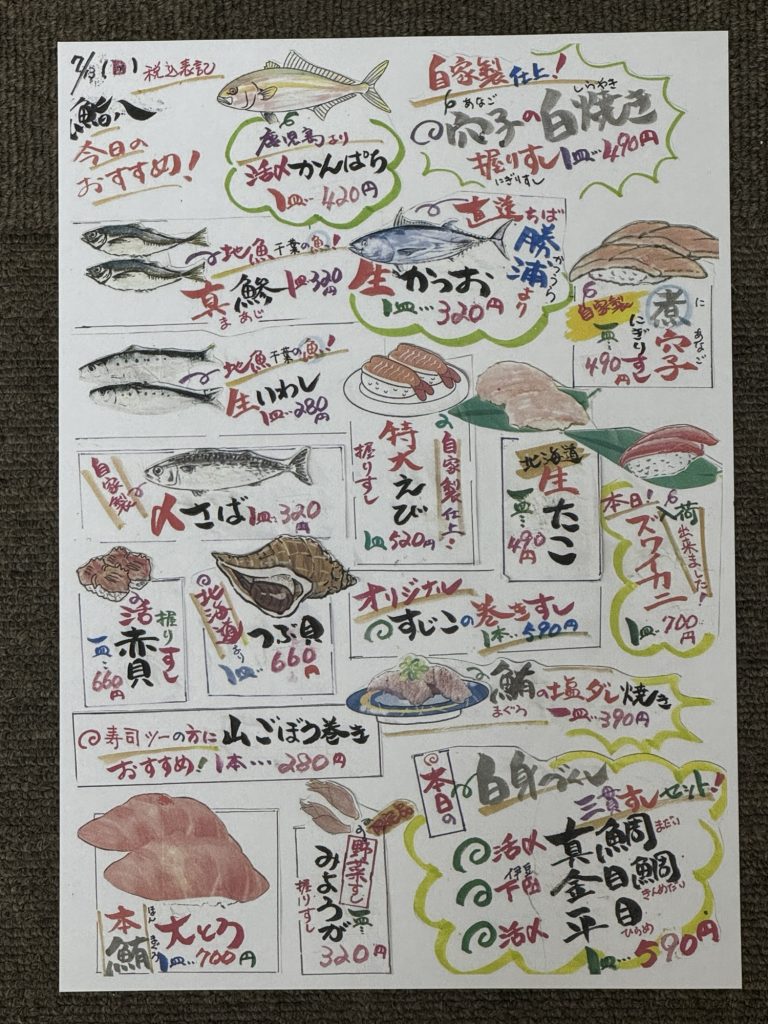 7/13(日) 税込表記
鮨八
今日の
おすすめ!
鹿児島より
活〆かんぱち
1皿…420円
自家製仕上!
あなご しらやき
穴子の白焼き
握りすし1皿…490円
にぎりすし
地魚 千葉の魚!
真鯵 1皿320円
まあじ
直送ちば
勝浦より
かつうら
生かつお
1皿…320円
自家製
煮穴子
に あなご
にぎりすし
一皿…490円
地魚 千葉の魚!
生いわし
1皿…280円
自家製仕上
特大えび
握りすし
1皿520円
北海道
生たこ
一皿…490円
本日!入荷出来ました!
ズワイカニ
1皿…700円
自家製
〆さば 1皿…320円
活赤貝
握りすし
一皿…660円
北海道より
つぶ貝
1皿…660円
オリジナル
すじこの巻きすし
1本…590円
鮪の塩ダレ焼き
まぐろ
一皿…390円
寿司ツーの方に山ごぼう巻き
おすすめ!1本…280円
本鮪
ほんまぐろ
大とろ
1皿…700円
野菜すし
みょうが
握りすし
一皿…320円
本日の
白身づくし
三貫すしセット!
活〆 真鯛 まだい
伊豆下田 金目鯛 きんめだい
活〆 平目 ひらめ
1皿…590円